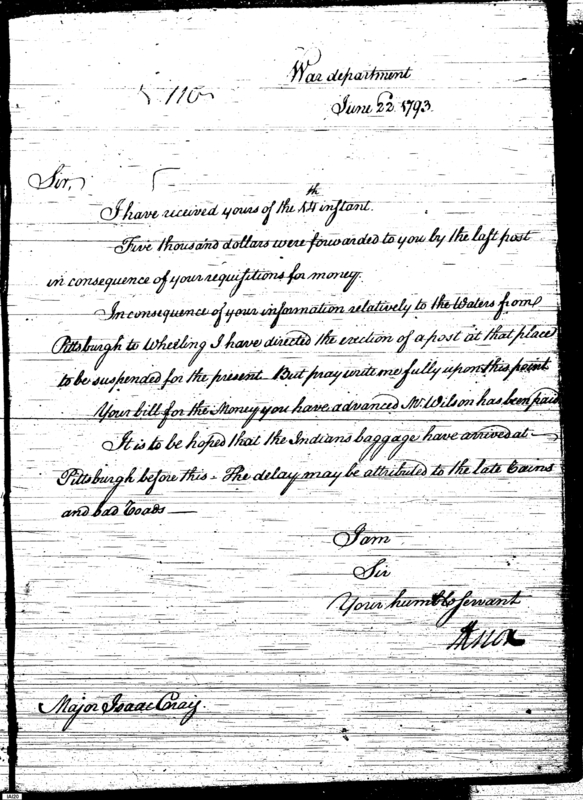 War department
110
June 22 1793
Sir,
I have received yours of the 14th instant.
Five thousand dollars were forwarded to you by the last post
in consequence of your requisitions for money.
In consequence of your information relatively to the Waters from
Pittsburgh to Wheeling I have directed the erection of a post at that place
to be suspended for the present. But pray write me fully upon this point
Your bill for the Money you have advanced Mr. Wilson has been paid
It is to be hoped that the Indians baggage have arrived at
Pittsburgh before this - The delay may be attributed to the late rains
and bad roads —
I am
Sir
Your humble servant
HKnox
Major Isaac Craig.